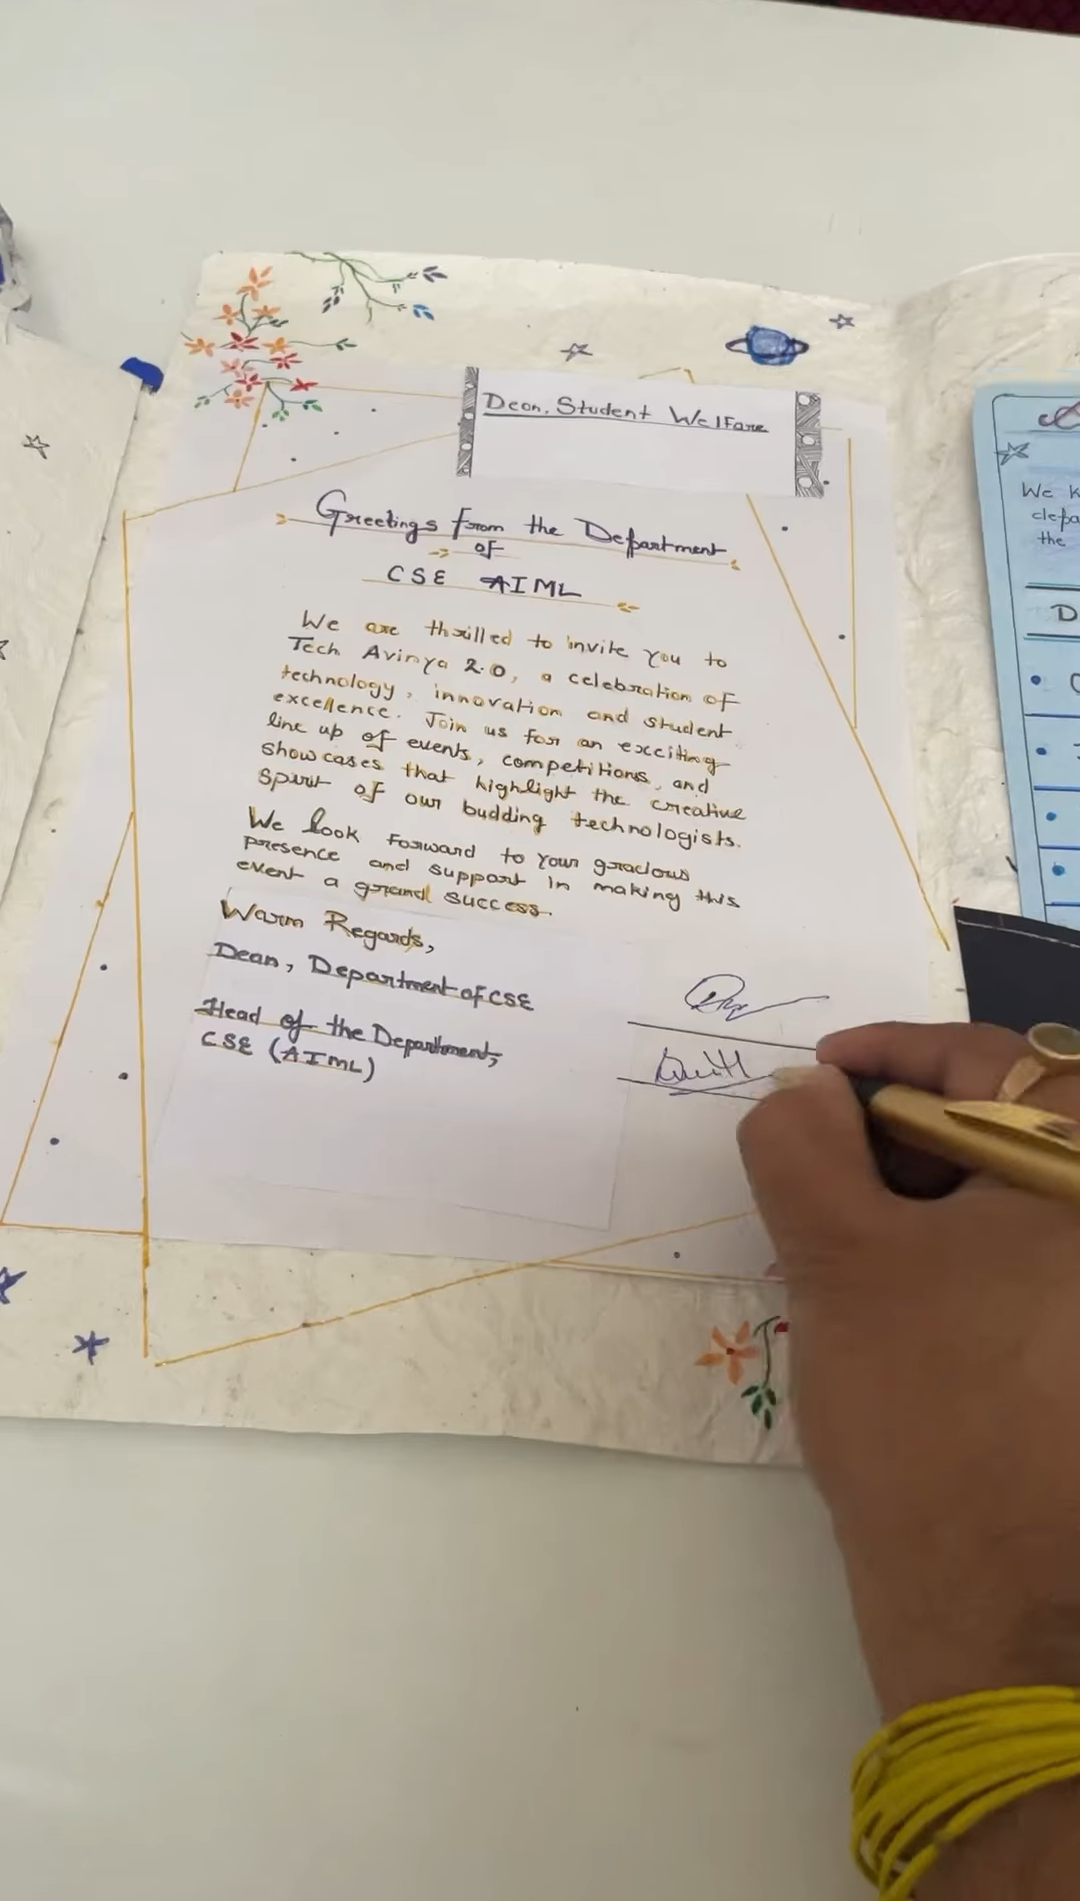 Dean, Student Welfare
Greetings from the Department
of
CSE AIML
We are thrilled to invite you to
Tech Avinya 2.0, a celebration of
technology, innovation and student
excellence. Join us for an exciting
line up of events, competitions, and
showcases that highlight the creative
spirit of our budding technologists.
We look forward to your gracious
presence and support in making this
event a grand success.
Warm Regards,
Dean, Department of CSE
Head of the Department,
CSE (AIML)
We
the
D